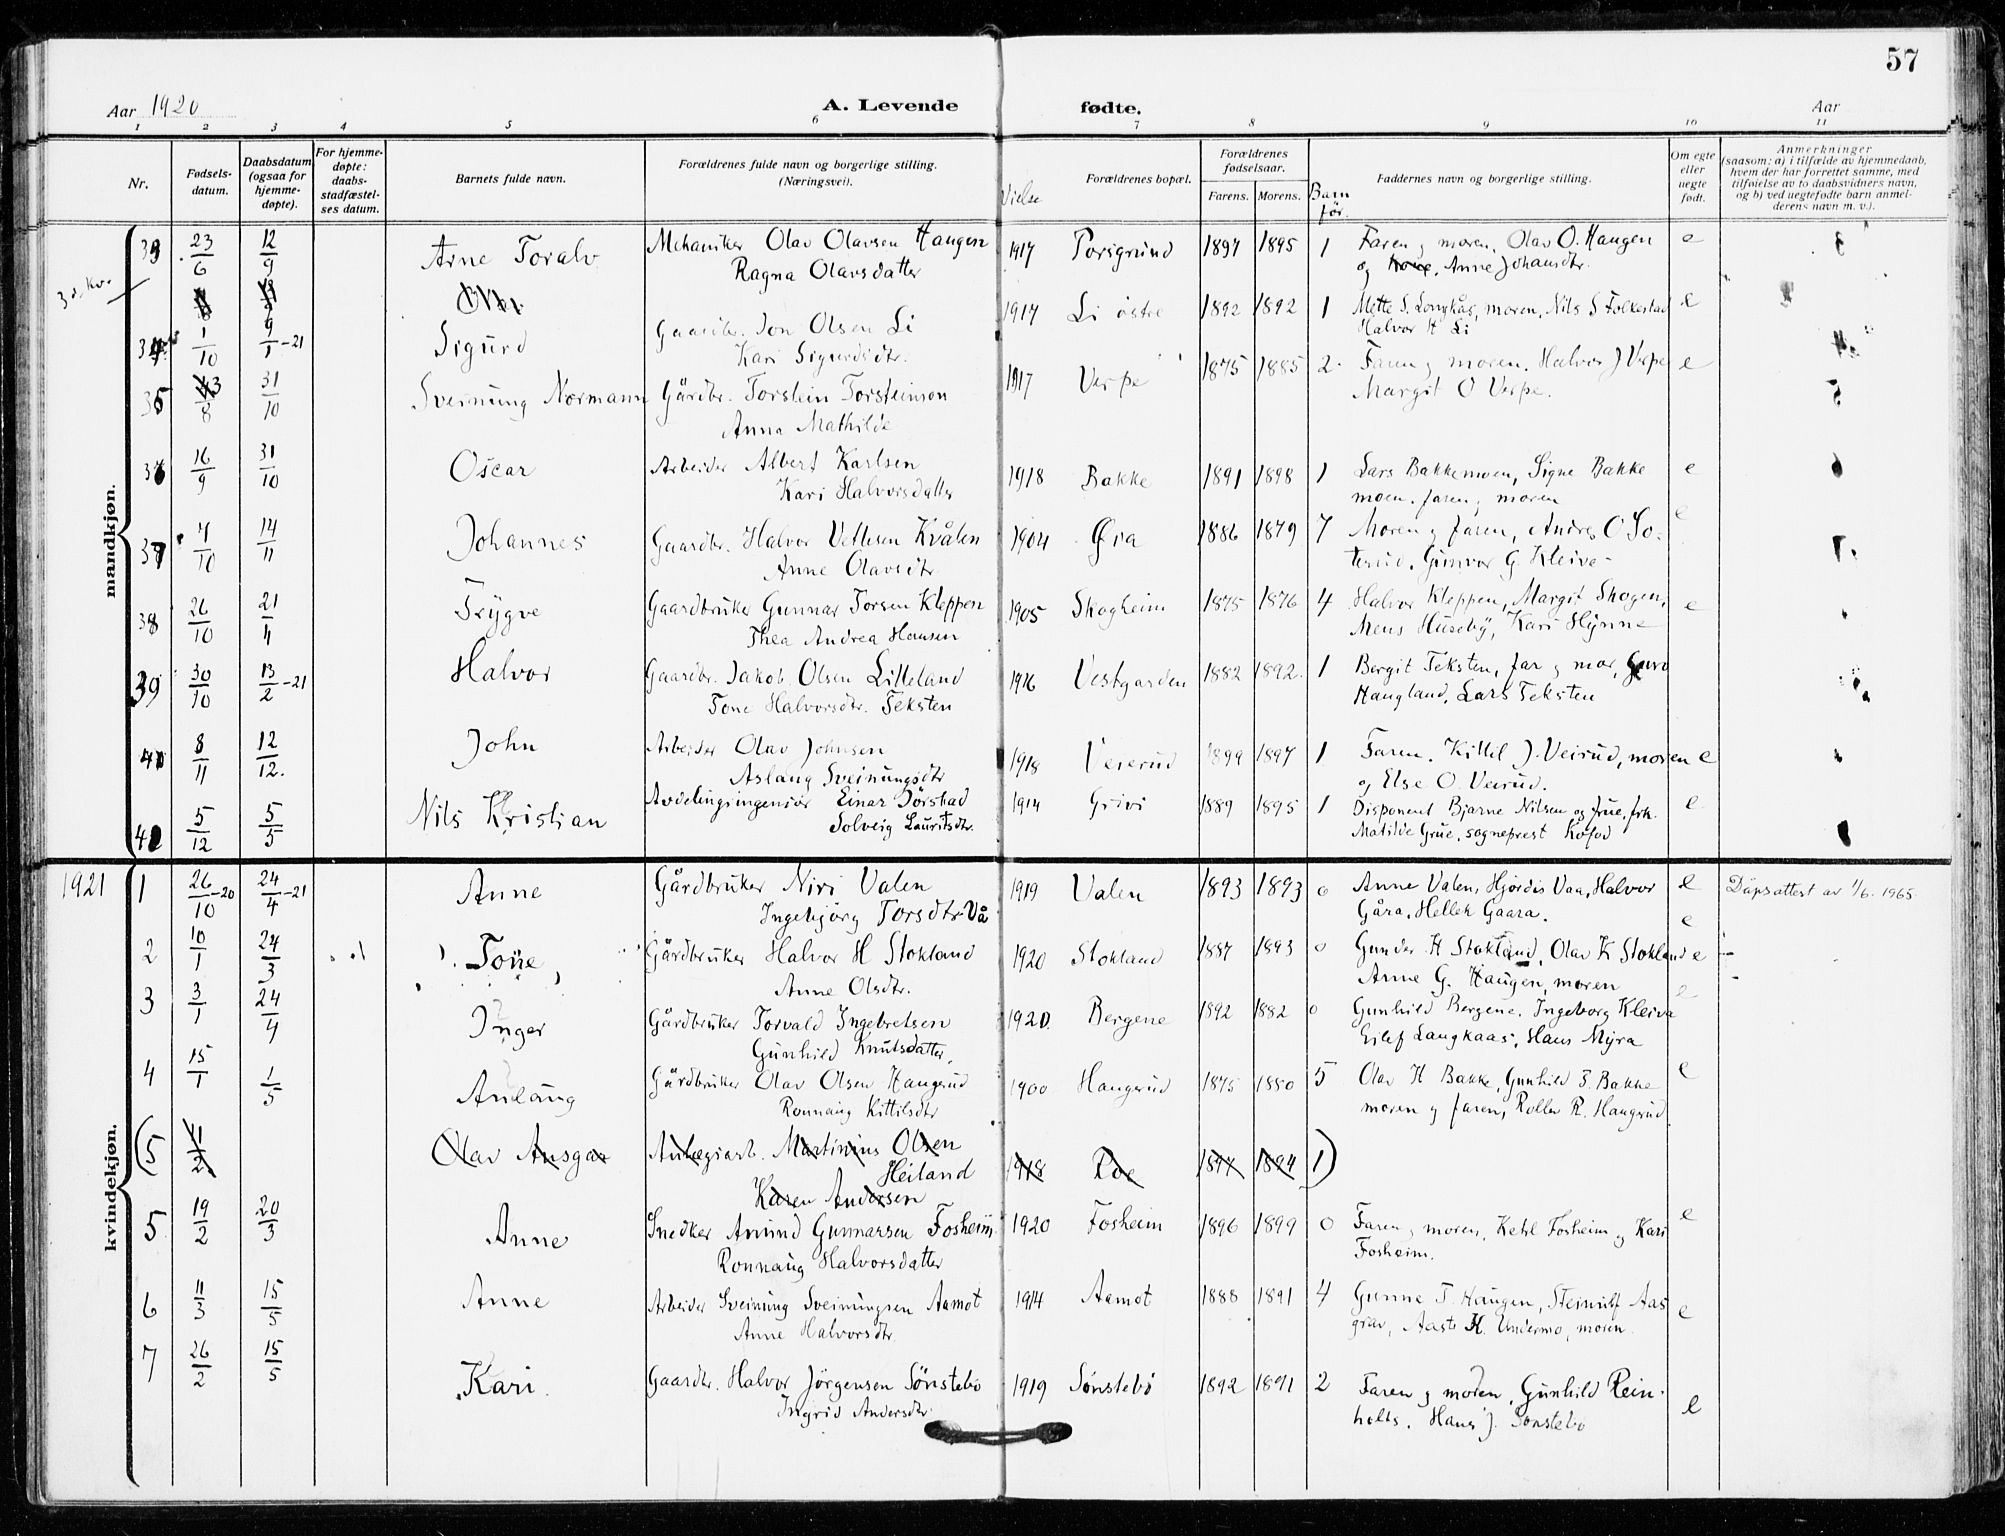 57
Aar 1920 A. Levende fødte. Aar
1 2 3 4 5 6 7 8 9 10 11
Nr.
Fødsels-
datum.
Daabsdatum
(ogsaa for
hjemme-
døpte).
For hjemme-
døpte:
daabs-
stadfæstel-
ses datum.
Barnets fulde navn.
Forældrenes fulde navn og borgerlige stilling.
(Næringsvei).
Vielse
Forældrenes bopæl.
Forældrenes
fødselsaar.
Farens. Morens.
Barn
før.
Faddernes navn og borgerlige stilling.
Om egte
eller
uegte
født.
Anmerkninger
(saasom: a) i tilfælde av hjemmedaab,
hvem der har forrettet samme, med
tilføielse av to daabsvidners navn,
og b) ved uegtefødte barn anmel-
derens navn m. v.).
mandkjøn.
3d. kv.
33 23/6 12/9 Arne Toralv Mekaniker Olav Olavsen Haugen 1917 Porsgrund 1897 1895 1 Faren og moren, Olav O. Haugen e
Ragna Olavsdatter og Anne Johansdtr.
34 1/10 9/1-21 Sigurd Gaardbr. Jon Olsen Li 1917 Li østre 1892 1892 1 Mette S. Longkås, moren, Nils S Folkestad e
Kari Sigurdsdtr. Halvor H Li
35 /8 31/10 Sveinung Normann Gårdbr. Torstein Torsteinson 1917 Verpe 1875 1885 2 Faren og moren. Halvor J Verpe e
Anna Mathilde Margit O Verpe.
36 16/9 31/10 Oscar Arbeider Albert Karlsen 1918 Bakke 1891 1898 1 Lars Bakkemoen, Signe Bakke e
Kari Halvorsdatter moen. faren og moren
37 4/10 14/11 Johannes Gaardbr. Halvor Vethesen Kvålen 1904 Øra 1886 1879 7 Moren og faren, Andres O So- e
Anne Olavsdtr terud, Gunvor G. Kleiva-
38 26/10 21/11 Trygve Gaardbruker Gunnar Torsen Kleppen 1905 Skogheim 1875 1876 4 Halvor Kleppen, Margit Skogen, e
Thea Andrea Hansen Mens Huseby, Kari Hynne
39 30/10 13/2-21 Halvor Gaardbr. Jakob Olsen Lilleland 1916 Vestgarden 1882 1892. 1 Bergit Teksten, far og mor, Guro
Tone Halvorsdtr. Teksten Haugland, Lars Teksten
40 8/11 12/12. John Arbeider Olav Johnsen 1918 Veierud 1899 1897 1 Faren. Kittil J. Veirud, moren e
Aslaug Sveinungsdtr og Else O. Veirud.
41 5/12 5/5 Nils Kristian Avdelingsingeniør Einar Jörstad 1914 Grivi 1889 1895 1 Disponent Bjarne Nilsen og frue, frk. e
Solveig Lauritsdtr. Matilde Grue, sogneprest Kofod
kvindekjøn.
1921 1 26/10-20 24/4-21 Anne Gårdbruker Niri Valen 1919 Valen 1893 1893 0 Anne Valen, Hjördis Vaa, Halvor e Dåpsattest av 1/6. 1965
Ingebjørg Torsdtr Vå Gåra, Hellek Gaara. e
2 10/1 24/3 Tone Gårdbruker Halvor H Stokland 1920 Stokland 1887 1893 0 Gunder H Stokland, Olav K Stokland e
Anne Olsdtr. Anne G. Haugen, moren
3 3/1 24/4 Inger Gårdbruker Torvald Ingebretsen 1920. Bergene 1892 1882 0 Gunhild Bergene, Ingeborg Kleiva e
Gunhild Knutsdatter Eilef Langkaas, Hans Myra
4 15/1 1/5 Anlaug Gårdbruker Olav Olsen Haugerud 1900 Haugerud 1875 1880 5 Olav H Bakke, Gunhild 3. Bakke e
Ronnaug Kittilsdtr moren og faren, Rollev R. Haugerud
(5 Olav Ansgar Anlægsarb. Martinius Olsen 1918 Roe 1897 1894 1)
Heiland
Karen Andersen
5 19/2 20/3 Anne Snedker Amund Gunnarsen Fosheim 1920 Fosheim 1896 1899 0 Faren og moren, Ketil Fosheim og Kari e
Ronnaug Halvorsdatter Fosheim.
6 11/3 15/5 Anne Arbeider Sveinung Sveinungsen Aamot 1914 Aamot 1888 1891 4 Gunne T. Haugen, Steinulf Aas e
Anne Halvorsdtr grav, Aaste H. Undermo, moren.
7 26/2 15/5 Kari Gaardbr. Halvor Jörgensen Sönstebö 1919 Sønstebö 1892 1891 2 Faren og moren, Gunhild Rein- e
Ingrid Andersdtr. holts. Hans J. Sonstebo